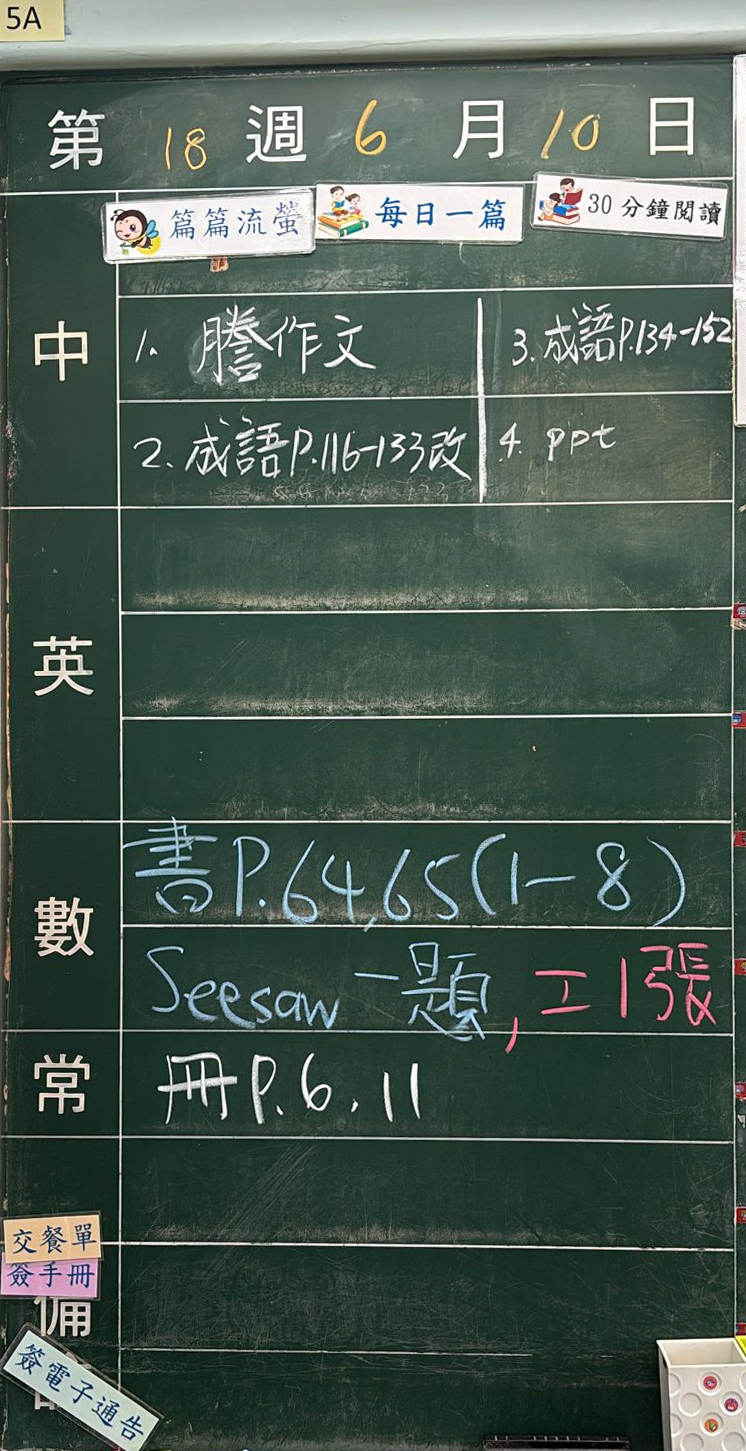 5A
第 18 週 6 月 10 日
篇篇流螢 每日一篇 30分鐘閱讀
中
1. 謄作文
2. 成語P.116-133改
3. 成語P.134-152
4. ppt
英
數
書P.64,65(1-8)
Seesaw一題,工1張
常
冊P.6.11
交餐單
簽手冊
備
簽電子通告